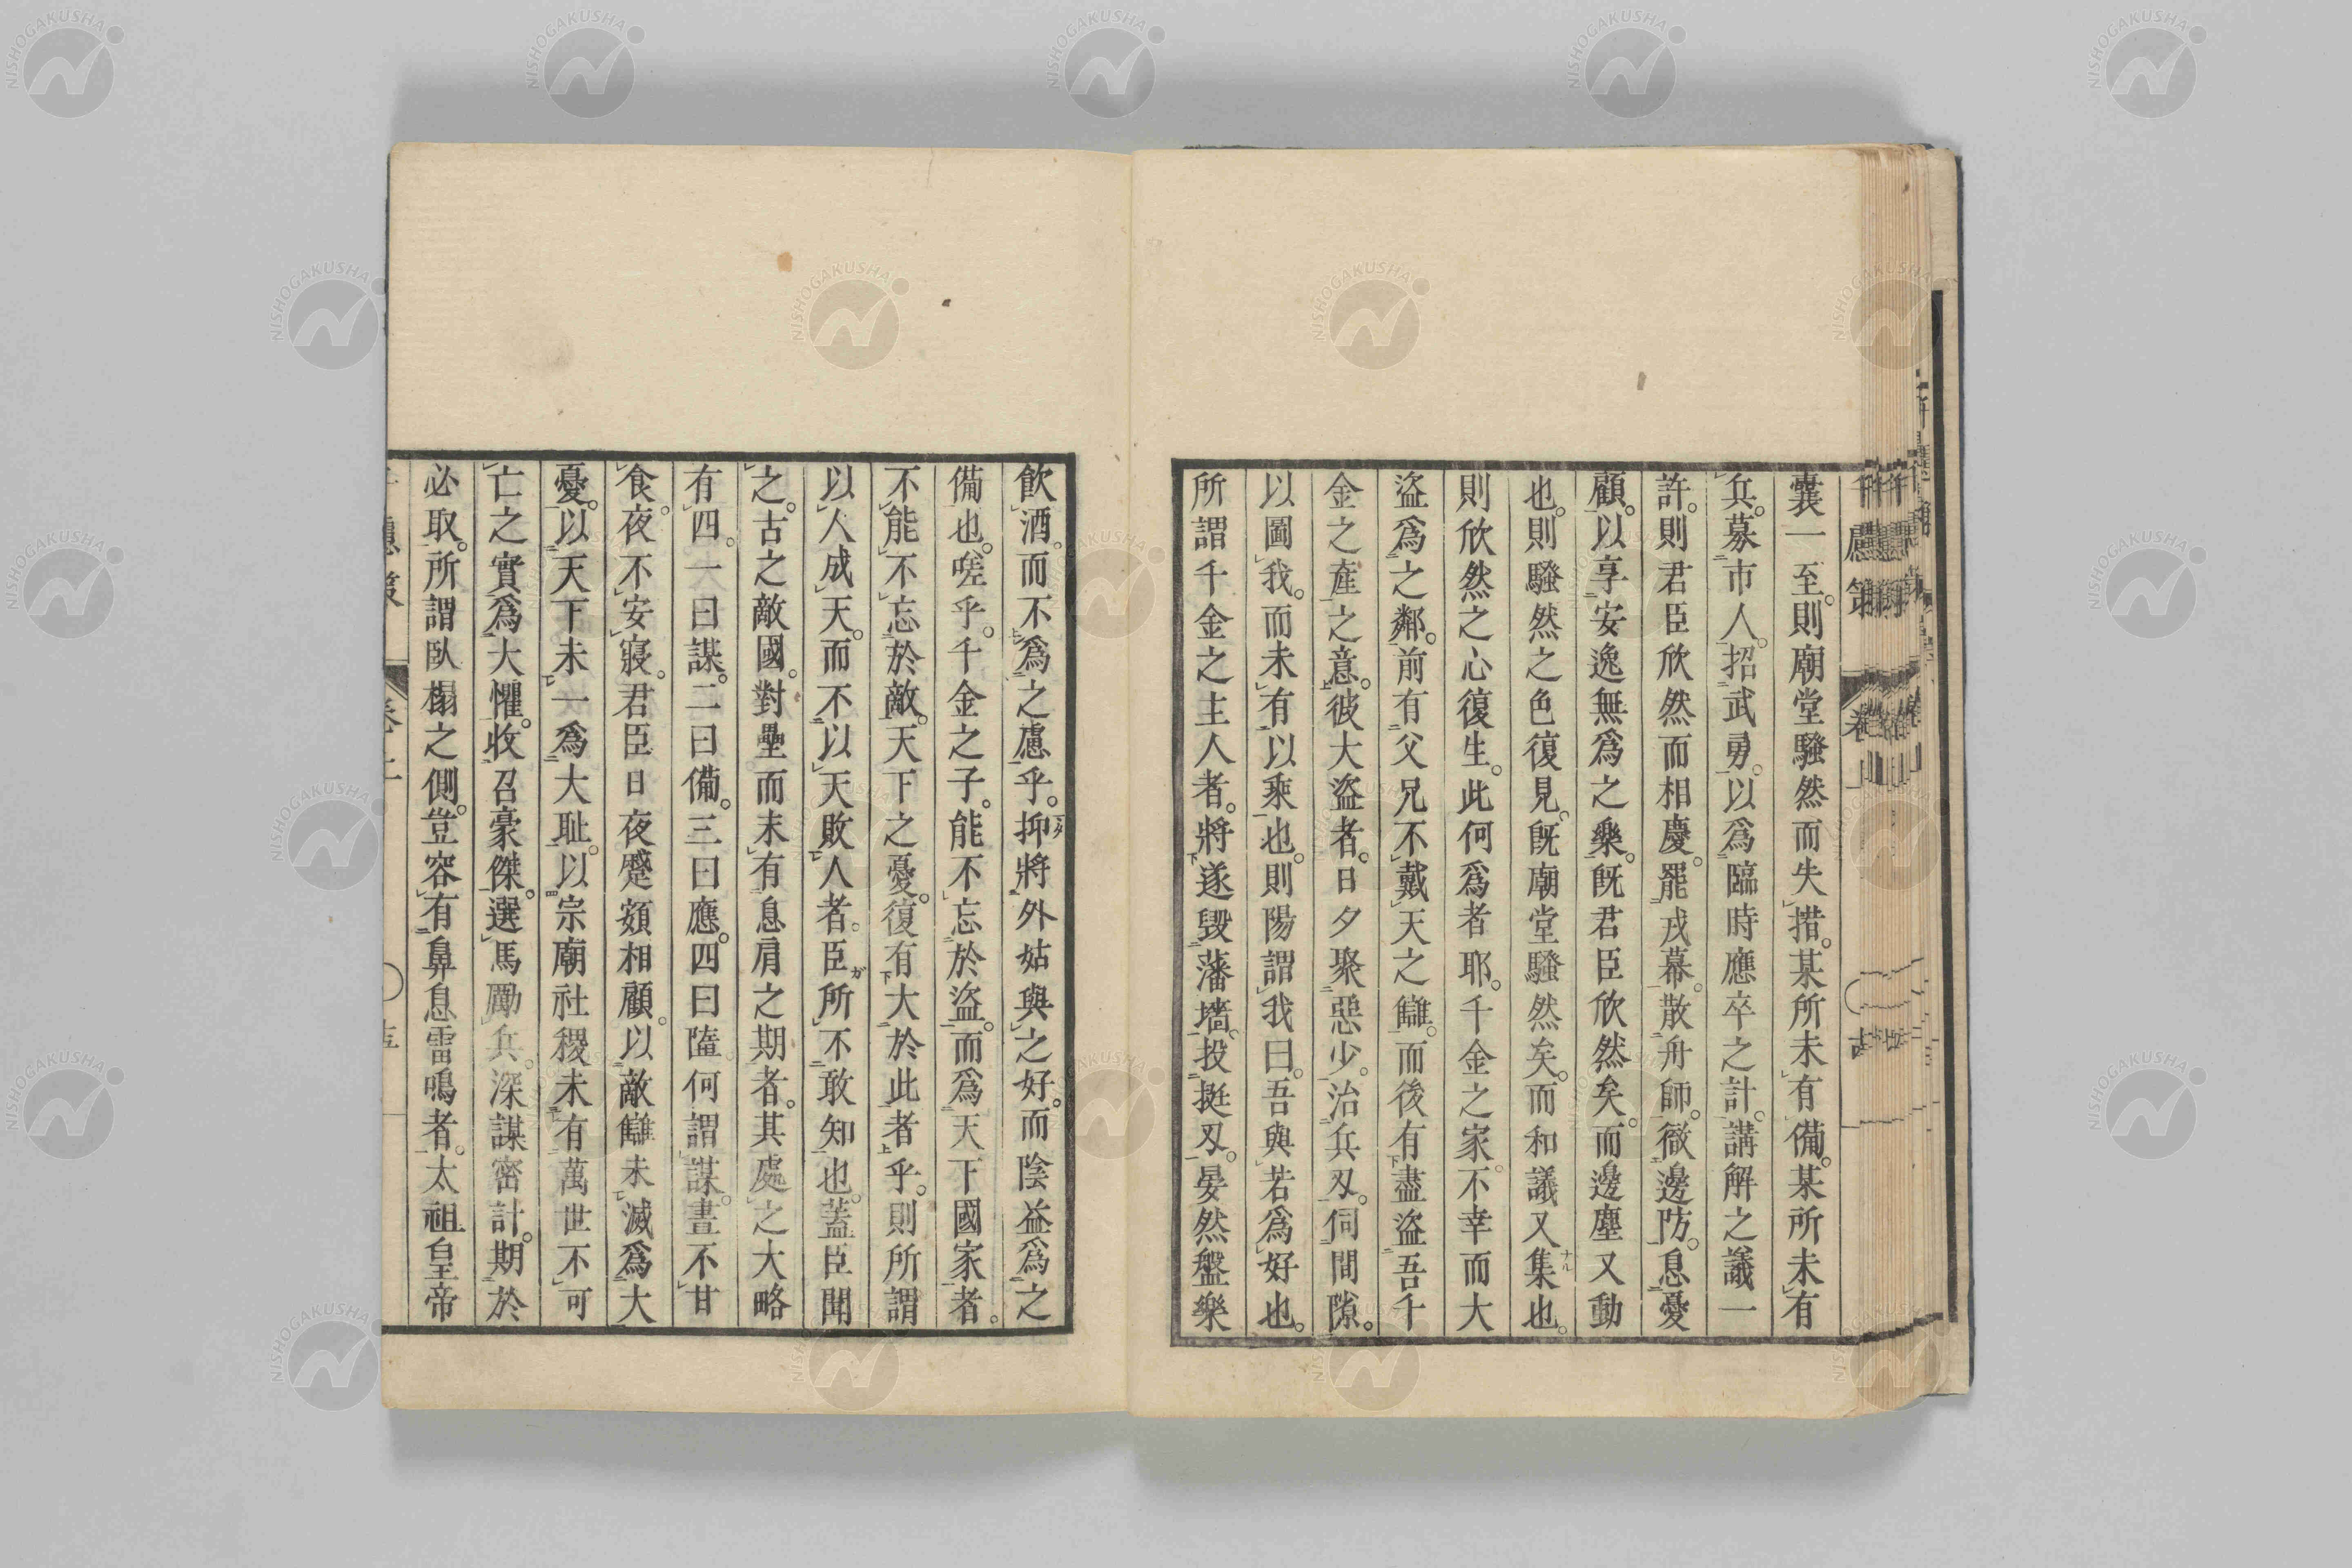 囊一至。則廟堂騷然而失措。某所未有備。某所未有
兵。募市人。招武勇。以爲臨時應卒之計。講解之議一
許。則君臣欣然而相慶。罷戎幕。散舟師。徹邊防。息憂
顧。以享安逸無爲之樂。旣君臣欣然矣。而邊塵又動
也。則騷然之色復見。旣廟堂騷然矣。而和議又集也。
則欣然之心復生。此何爲者耶。千金之家。不幸而大
盜爲之鄰。前有父兄不戴天之讎。而後有盡盜吾千
金之產之意。彼大盜者。日夕聚惡少。治兵刃。伺間隙。
以圖我。而未有以乘也。則陽謂我曰。吾與若爲好也。
所謂千金之主人者。將遂毀藩墻。投挺刃。晏然盤樂
飲酒。而不爲之慮乎。抑將外姑與之好。而陰益爲之
備也。嗟乎。千金之子。能不忘於盜。而爲天下國家者。
不能不忘於敵。天下之憂。復有大於此者乎。則所謂
以人成天。而不以天敗人者。臣所不敢知也。蓋臣聞
之。古之敵國。對壘而未有息肩之期者。其處之大略
有四。一曰謀。二曰備。三曰應。四曰隨。何謂謀。晝不甘
食。夜不安寢。君臣日夜蹙額相顧。以敵讎未滅爲大
憂。以天下未一爲大耻。以宗廟社稷未有萬世不可
亡之實爲大懼。收召豪傑。選馬勵兵。深謀密計。期於
必取。所謂臥榻之側。豈容有鼻息雷鳴者。太祖皇帝